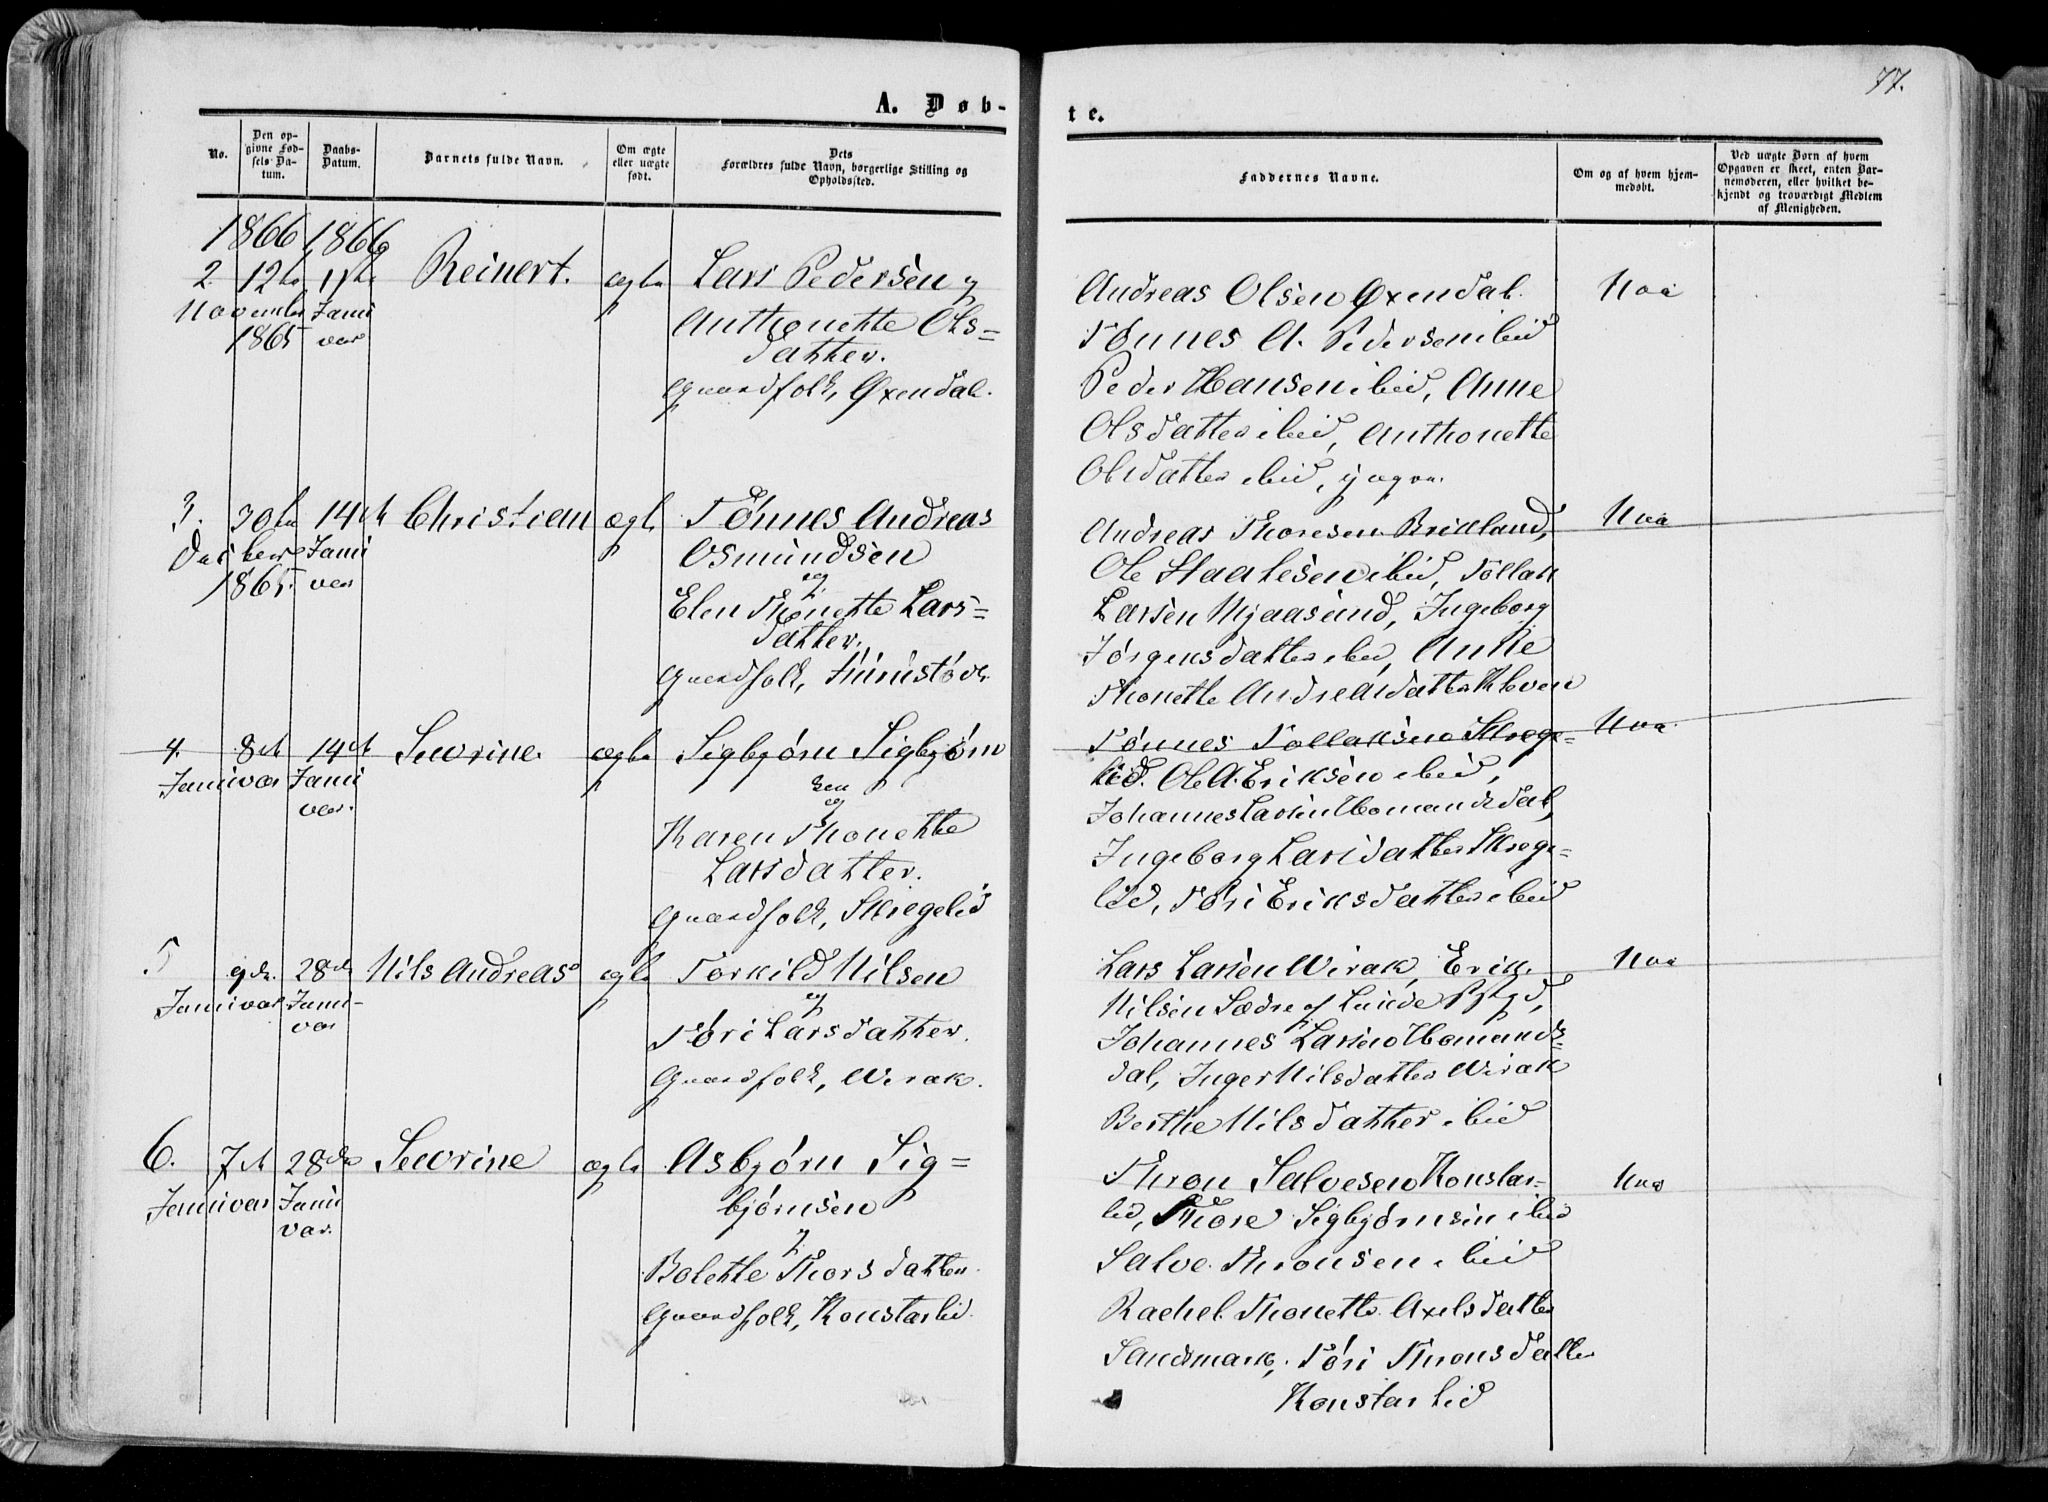 77.
A. Døb-
te.
No.
Den op-
givne Fød-
sels-Da-
tum.
Daabs-
Datum.
Barnets fulde Navn.
Om ægte
eller uægte
født.
Dets
Forældres fulde Navn, borgerlige Stilling og
Opholdssted.
Faddernes Navne.
Om og af hvem hjem-
medøbt.
Ved uægte Børn af hvem
Opgaven er skeet, enten Bar-
nemoderen, eller hvilket be-
kjendt og troværdigt Medlem
af Menigheden.
1866 1866
2. 12te
November
1865
Janu
var
Reinert.
ægte
Lars Pedersen og
Anthonette Ols-
datter.
Gaardfolk, Øxendal.
Andreas Olsen Øxendal.
Tönnes A. Pedersen ibid
Peder Hansen ibid, Anne
Olsdatter ibid, Anthonette
Olsdatter ibid,
3. 30te
Decbere
1865.
14de
Janu
var
Christian
ægte
Tönnes Andreas
Osmundsen
og
Elen Thonette Lars-
datter.
Gaardfolk,
Andreas Thoresen
Ole Staalesen ibid, Tollak
Larsen Mjaasund, Ingeborg
Jørgensdatter ibid, Anne
Thonette Andreasdatter Kleven
4. 8de
Januvar
14de
Janu
var.
Sevrine.
ægte
Sigbjørn Sigbjørn
sen
og
Karen Thonette
Larsdatter.
Gaardfolk, Skregelid
Tønnes Tollaksen Skrege-
lid. Ole A. Eriksen ibid,
Johannes Larsen Homandsdal,
Ingeborg Larsdatter Skrege-
lid, Töri Eriksdatter ibid
5
9de.
Januvar
28de
Janu-
var
Nils Andreas
ægte
Torkild Nilsen
og
Töri Larsdatter.
Gaardfolk, Wirak.
Lars Larsen Wirak, Erik
Nilsen Sædre af Lunde Pstgd,
Johannes Larsen Homands-
dal, Inger Nilsdatter Wirak
Berthe Nilsdatter ibid
6. 7de
Januvar
28de
Janu
var.
Sevrine
ægte
Asbjørn Sig-
bjørnsen
og
Bolette Thorsdatter.
Gaardfolk, Konstarlid.
Thron Salvesen Konstar-
lid, Thore Sigbjørnsen ibid
Salve Thronsen ibid
Rachel Thonette Axelsdatter
Sandsmark, Töri Thronsdatter
Konstarlid